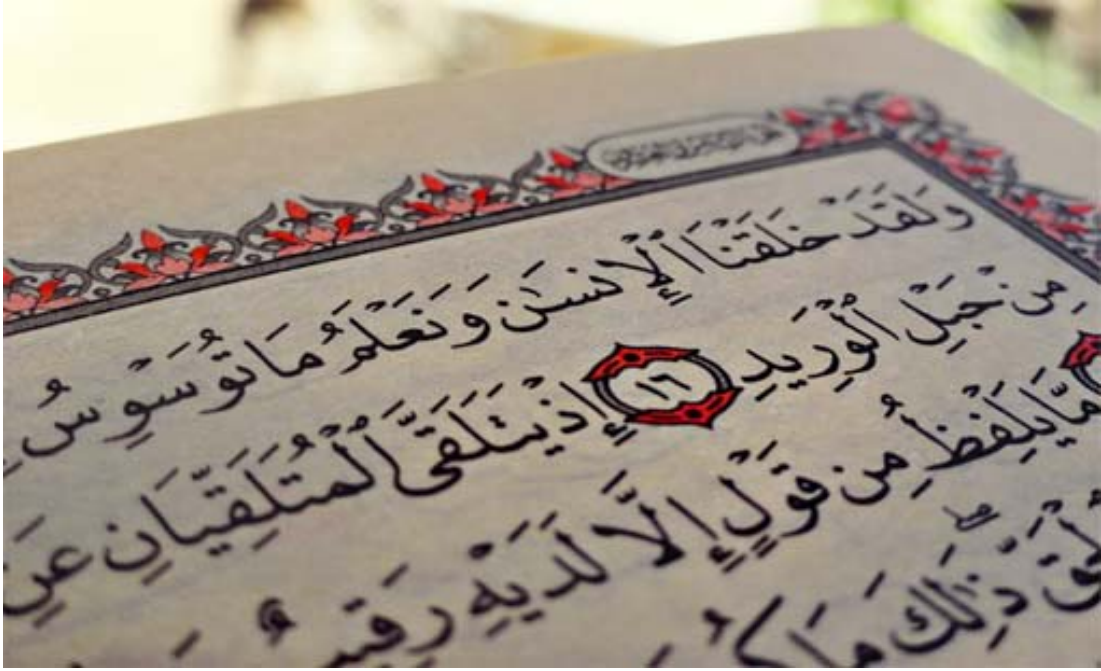 وَلَقَدْ خَلَقْنَا ٱلْإِنسَٰنَ وَنَعْلَمُ مَا تُوَسْوِسُ
مِنْ حَبْلِ ٱلْوَرِيدِ ١٦ إِذْ يَتَلَقَّى ٱلْمُتَلَقِّيَانِ عَنِ
مَّا يَلْفِظُ مِن قَوْلٍ إِلَّا لَدَيْهِ رَقِيبٌ
ذَٰلِكَ مَا